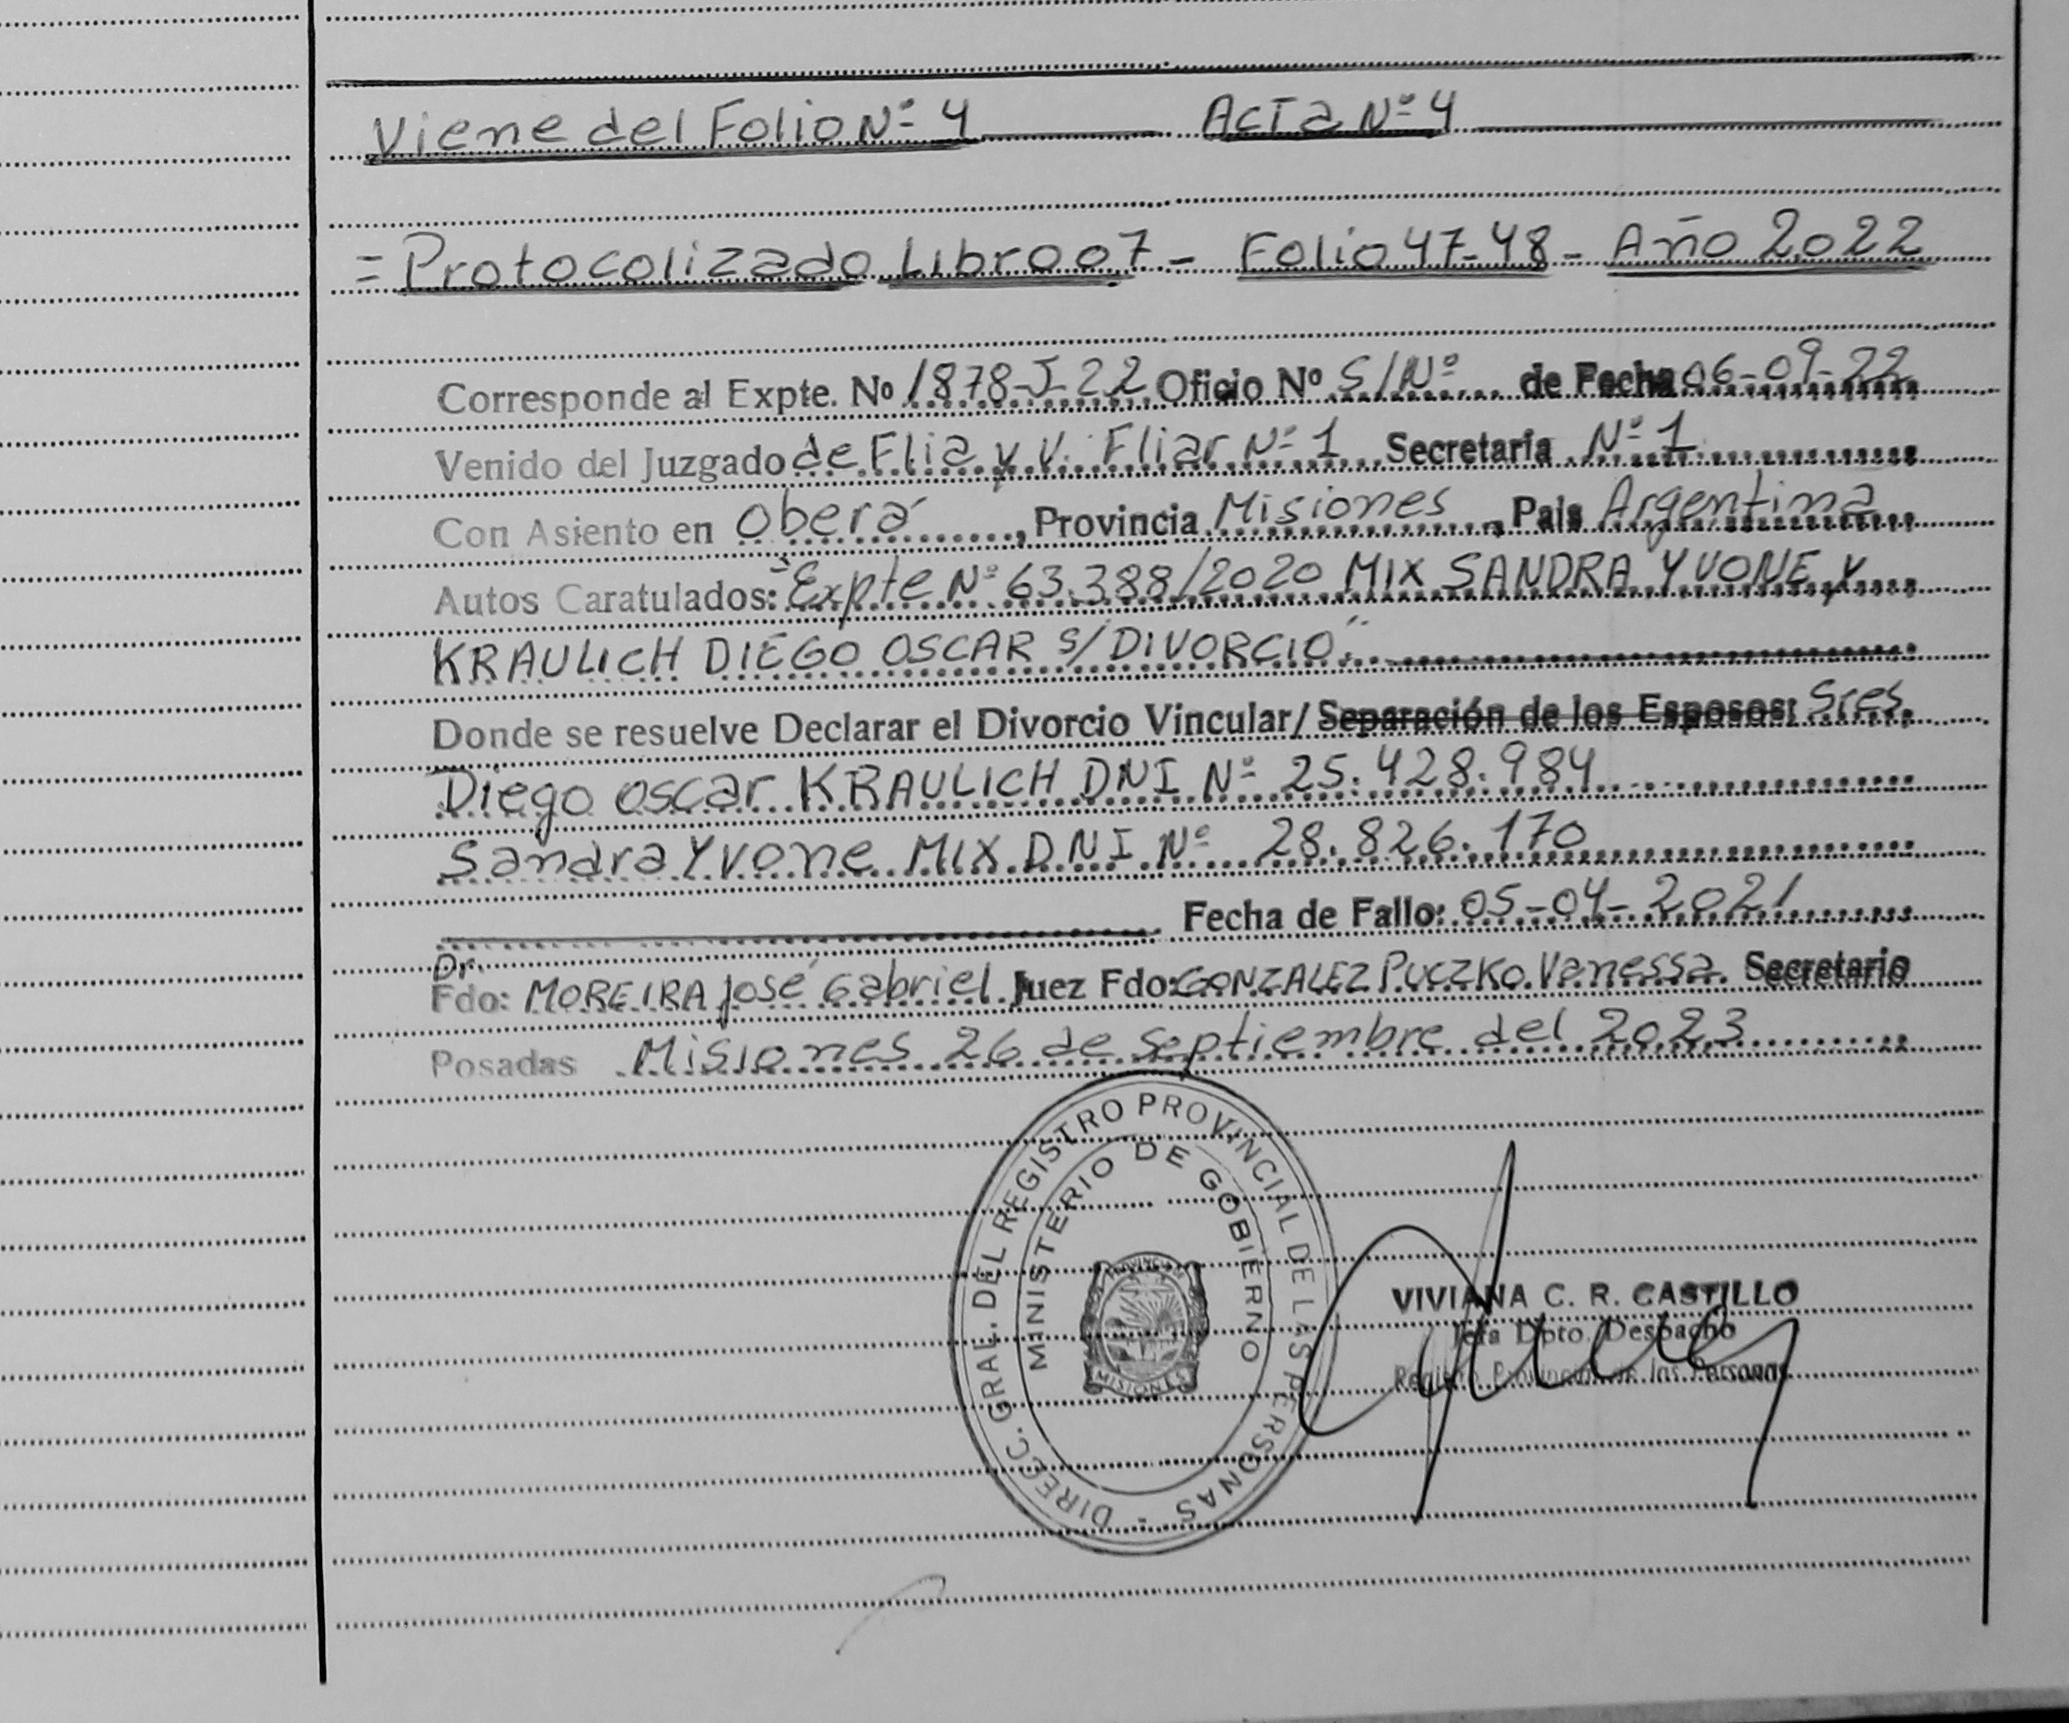 Viene del Folio Nº 4 Acta Nº 4
= Protocolizado Libro 07 - Folio 47-48 - Año 2022
Corresponde al Expte. Nº 1878-J-22 Oficio Nº S/Nº de Fecha 06-09-22
Venido del Juzgado de Flia y V. Fliar Nº 1 Secretaría Nº 1
Con Asiento en Oberá, Provincia Misiones, Pais Argentina
Autos Caratulados: "Expte Nº 63.388/2020 MIX SANDRA YVONE y
KRAULICH DIEGO OSCAR s/ DIVORCIO".
Donde se resuelve Declarar el Divorcio Vincular/ Separación de los Esposos: Sres.
Diego Oscar KRAULICH DNI Nº 25.428.984
Sandra Yvone MIX DNI Nº 28.826.170
Fecha de Fallo: 05-04-2021
Dr.
Fdo: MOREIRA José Gabriel Juez Fdo: GONZALEZ PUCZKO Vanessa Secretario
Posadas Misiones 26 de Septiembre del 2023
DIRECC. GRAL. DEL REGISTRO PROVINCIAL DE LAS PERSONAS -
MINISTERIO DE GOBIERNO
PROVINCIA
MISIONES
VIVIANA C. R. CASTILLO
Jefa Dpto. Despacho
Registro Provincial de las Personas